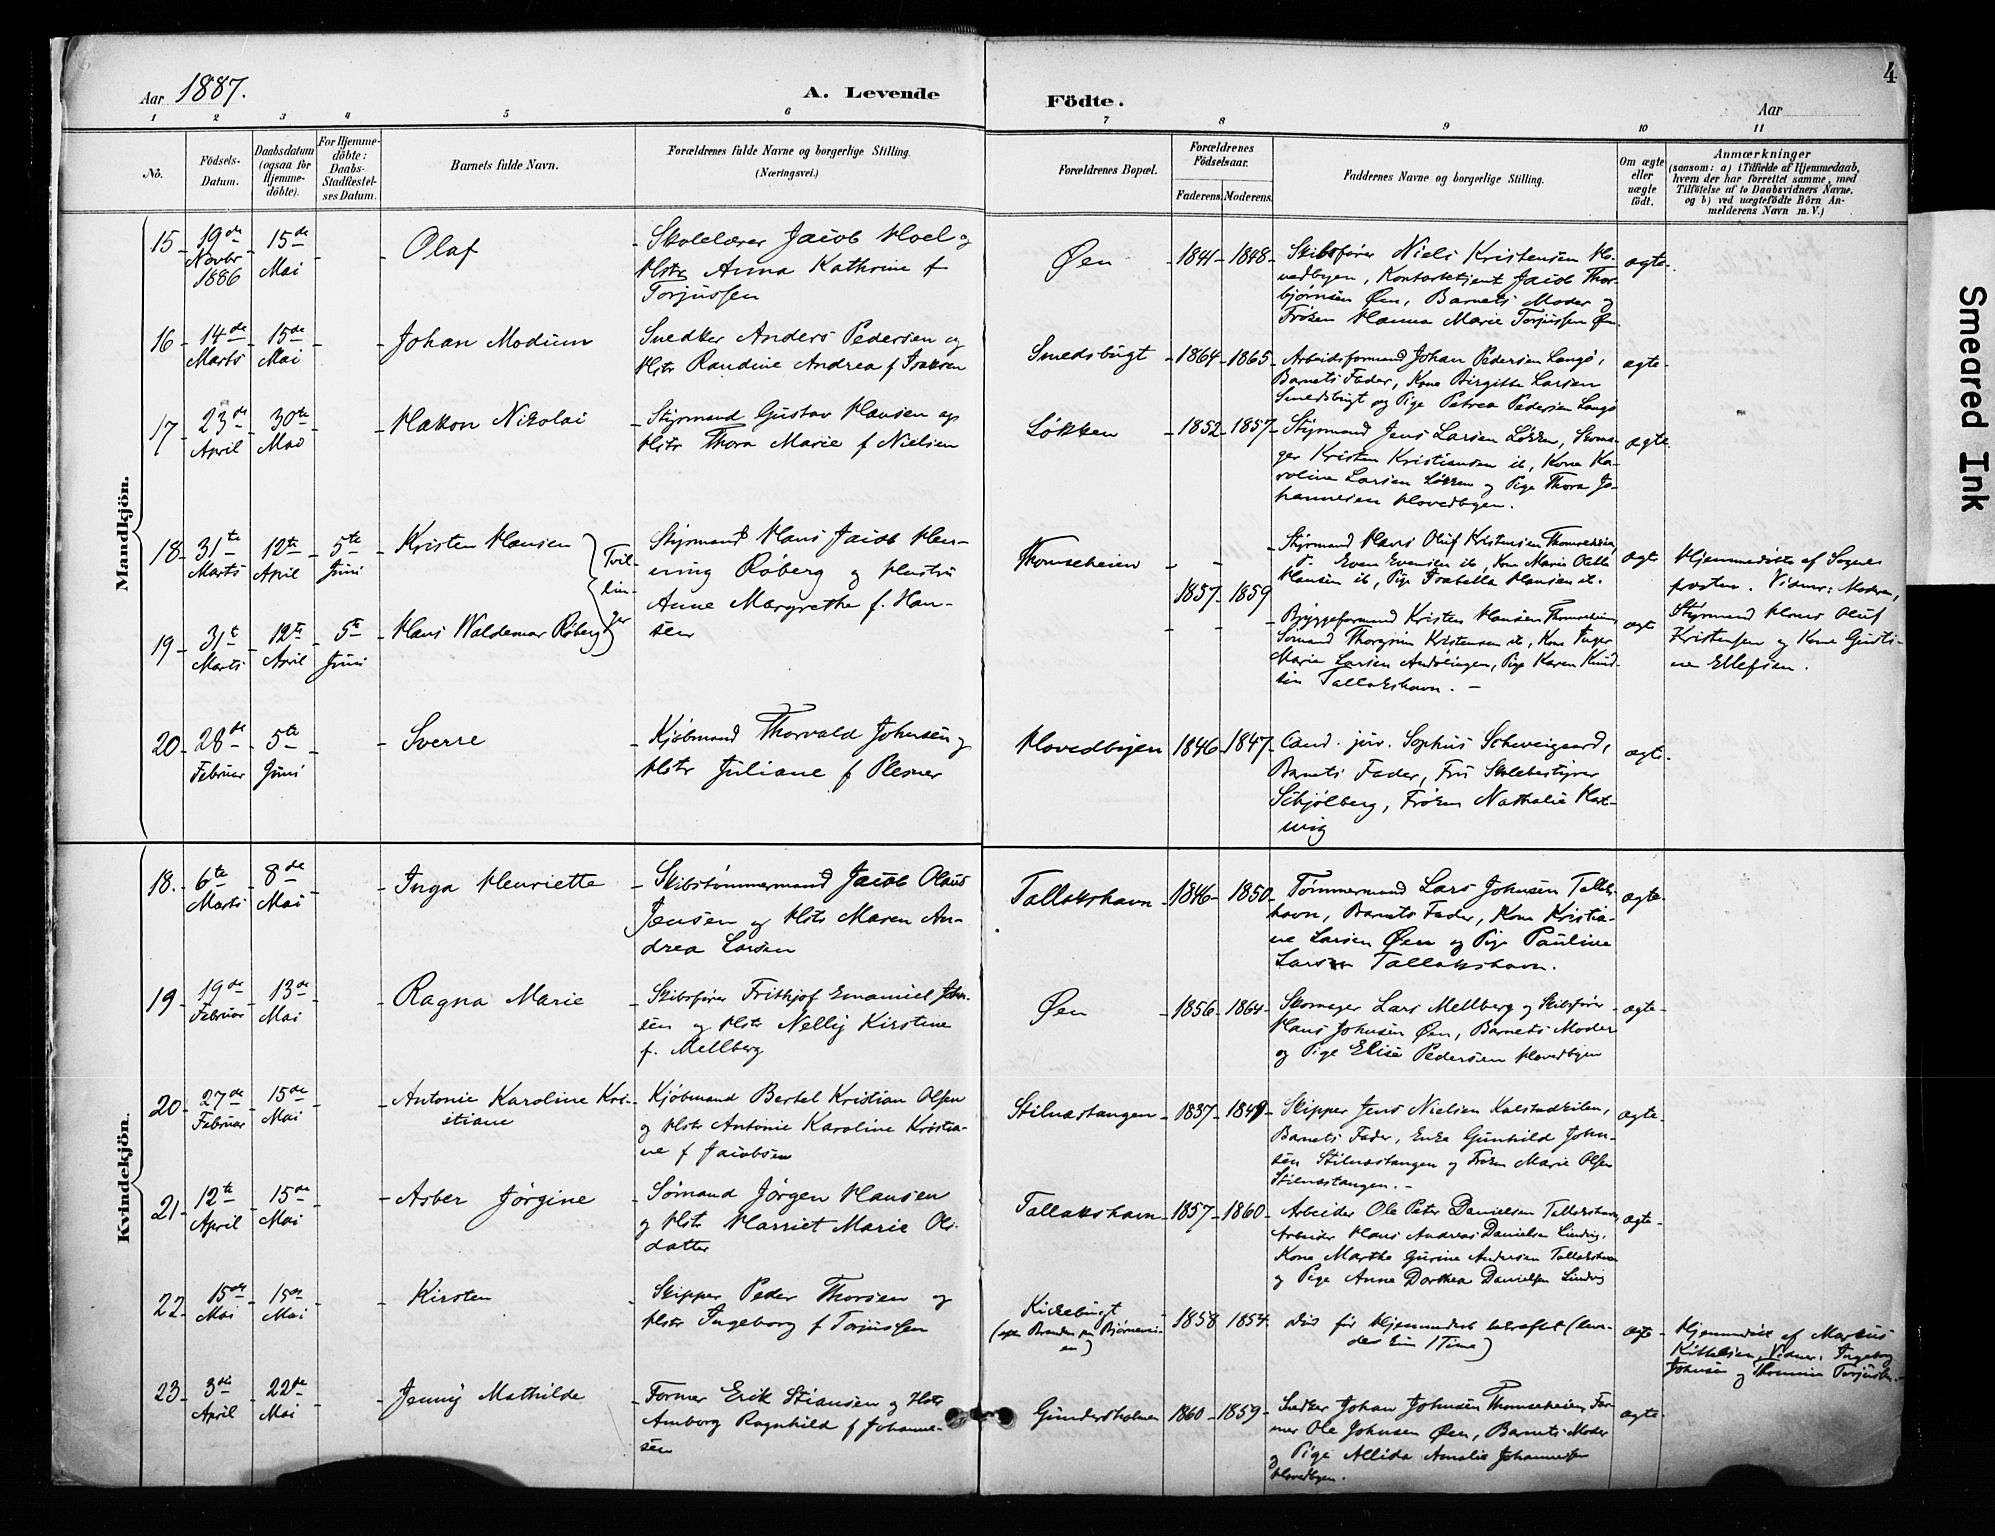 4
Aar 1887.
A. Levende Födte.
Aar
1 2 3 4 5 6 7 8 9 10 11
No.
Födsels-Datum.
Daabsdatum (ogsaa for Hjemme-döbte).
For Hjemme-döbte: Daabs-Stadfæstel-ses Datum.
Barnets fulde Navn.
Forældrenes fulde Navne og borgerlige Stilling.
(Næringsvei.)
Forældrenes Bopæl.
Forældrenes Födselsaar.
Faderens. Moderens.
Faddernes Navne og borgerlige Stilling.
Om ægte eller uægte födt.
Anmærkninger
(saasom: a) i Tilfælde af Hjemmedaab,
hvem der har forrettet samme, med
Tilföielse af to Daabsvidners Navne.
og b) ved uægtefödte Börn An-
melderens Navn m. V.)
Smeared Ink
Mandkjön.
15 19de Novbr 1886 15de Mai
Olaf
Skolelærer Jacob Hoel og
Hstr Anna Kathrine f
Torjussen
Øen
1841 1848
Skibsfører Niels Kristensen Ho-
vedbyen, Kontorbetjent Jacob Thor-
bjørnsen Øen, Barnets Moder og
Frøken Hanna Marie Torjussen Øen
ægte
16 14de Marts 15de Mai
Johan Modium
Snedker Anders Pedersen og
Hstr Randine Andrea f Isaksen
Smedsbugt
1864 1865
Arbeidsformand Johan Pedersen Langø,
Barnets Fader, Kone Birgitte Larsen
Smedsbugt og Pige Petrea Pedersen Langø
ægte
17 23de April 30te Mai
Hakon Nikolai
Styrmand Gustav Hansen og
Hstr Thora Marie f Nielsen
Løkken
1852 1857
Styrmand Jens Larsen Løkken, Skoma-
ger Kristen Kristiansen ib, Kone Ka-
roline Larsen Løkken og Pige Thora Jo-
hannesen Hovedbyen.
ægte
18 31te Marts 12te April 5te Juni
Kristen Hansen
Tvil-
lin-
ger
Styrmand Hans Jacob Hen-
ning Røberg og Hustru
Anne Margrethe f. Han-
sen
Thomseheien
1857 1859
Styrmand Hans Oluf Kristensen Thomseheien,
Even Evensen ib, Kone Marie
Hansen ib, Pige Isabella Hansen ib.
ægte
Hjemmedöbte af Sogne-
præsten. Vidner: Moderen,
Styrmand Hans Oluf
Kristensen og Kone Gusti-
ne Ellefsen.
19 31te Marts 12te April 5te Juni
Hans Waldemar Røberg
Bryggeformand Kristen Hansen Thomseheien,
Sømand Thorgrim Kristensen ib, Kone Inger
Marie Larsen, Pige Karen Knud-
sen Tallakshavn.
ægte
20 28de Februar 5te Juni
Sverre
Kjøbmand Thorvald Johnsen og
Hstr Juliane f Plesner
Hovedbyen
1846 1847
Cand. jur. Sophus Schweigaard,
Barnets Fader, Fru Skolebestyrer
Schjølberg, Frøken Nathalie Hart-
wig
ægte
Kvindekjön.
18. 6te Marts 8de Mai
Inga Henriette
Skibstømmermand Jacob Olaus
Jensen og Hstr Maren An-
drea Larsen
Tallakshavn
1846 1850
Tømmermand Lars Johnsen Tallaks-
havn, Barnets Fader, Kone Kristia-
ne Larsen Øen og Pige Pauline
Larsen Tallakshavn.
ægte
19 19de Februar 13de Mai
Ragna Marie
Skibsfører Frithjof Emanuel John-
sen og Hstr Nelly Kirstine
f. Mellberg
Øen
1856 1864
Skomager Lars Mellberg og Skibsfører
Hans Johnsen Øen, Barnets Moder
og Pige Elise Pedersen Hovedbyen
ægte
20 27de Februar 15de Mai
Antonie Karoline Kri-
stiane
Kjøbmand Bertel Kristian Olsen
og Hstr Antonie Karoline Kristia-
ne f Jacobsen
Stilnæstangen
1837 1849
Skipper Jens Nielsen Kalstadkilen,
Barnets Fader, Enke Gunhild John-
sen Stilnæstangen og Frøken Marie Olsen
Stilnæstangen.
ægte
21 12te April 15de Mai
Asber Jørgine
Sømand Jörgen Hansen
og Hstr Harriet Marie Ols-
datter
Tallakshavn
1857 1860
Arbeider Ole Peter Danielsen Tallakshavn,
Arbeider Hans Andreas Danielsen Lindvig,
Kone Marthe Gurine Andersen Tallakshavn
og Pige Anne Dorthea Danielsen Lindvig
ægte
22 15de Mai 15de Mai
Kirsten
Skipper Peder Thorsen og
Hstr Ingeborg f Torjussen
Kirkebugt
1858 1854
Død før Hjemmedaab bekræftet
ægte
Hjemmedöbt af Markus
Kittelsen, Vidner: Ingeborg
Johnsen og Thomine Torjussen.
23 3die April 22de Mai
Jenny Mathilde
Former Erik Stiansen og Hstr
Amborg Ragnhild f Johanne-
sen
Gundersholmen
1860 1859
Snedker Johan Johnsen Thomseheien, For-
mer Ole Johnsen Øen, Barnets Moder
og Pige Allida Amalie Johannessen
Hovedbyen.
ægte